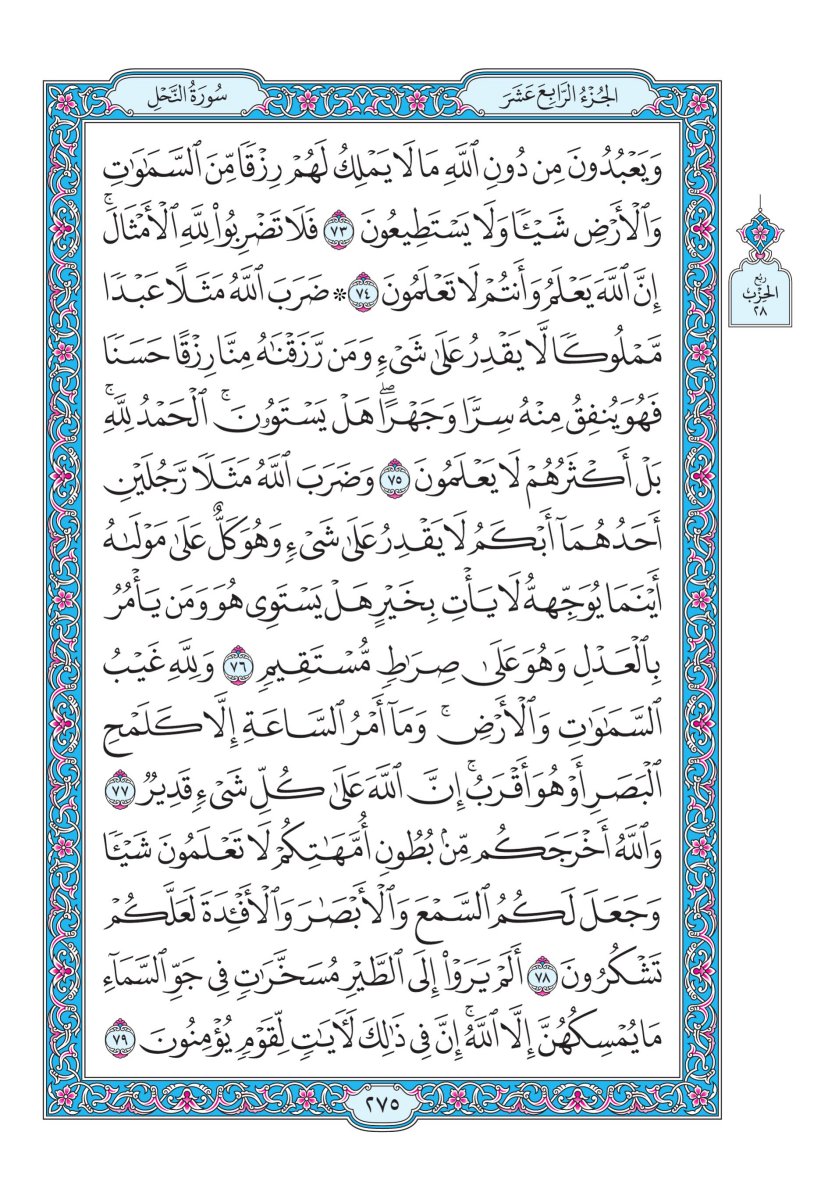 الجُزْءُ الرَّابِعَ عَشَرَ
سُورَةُ النَّحْلِ
وَيَعْبُدُونَ مِن دُونِ ٱللَّهِ مَا لَا يَمْلِكُ لَهُمْ رِزْقًا مِّنَ ٱلسَّمَٰوَٰتِ
وَٱلْأَرْضِ شَيْـًٔا وَلَا يَسْتَطِيعُونَ ٧٣ فَلَا تَضْرِبُوا۟ لِلَّهِ ٱلْأَمْثَالَ ۚ
إِنَّ ٱللَّهَ يَعْلَمُ وَأَنتُمْ لَا تَعْلَمُونَ ٧٤ * ضَرَبَ ٱللَّهُ مَثَلًا عَبْدًا
مَّمْلُوكًا لَّا يَقْدِرُ عَلَىٰ شَىْءٍ وَمَن رَّزَقْنَٰهُ مِنَّا رِزْقًا حَسَنًا
فَهُوَ يُنفِقُ مِنْهُ سِرًّا وَجَهْرًا ۖ هَلْ يَسْتَوُۥنَ ۚ ٱلْحَمْدُ لِلَّهِ ۚ
بَلْ أَكْثَرُهُمْ لَا يَعْلَمُونَ ٧٥ وَضَرَبَ ٱللَّهُ مَثَلًا رَّجُلَيْنِ
أَحَدُهُمَآ أَبْكَمُ لَا يَقْدِرُ عَلَىٰ شَىْءٍ وَهُوَ كَلٌّ عَلَىٰ مَوْلَىٰهُ
أَيْنَمَا يُوَجِّههُّ لَا يَأْتِ بِخَيْرٍ هَلْ يَسْتَوِى هُوَ وَمَن يَأْمُرُ
بِٱلْعَدْلِ وَهُوَ عَلَىٰ صِرَٰطٍ مُّسْتَقِيمٍ ٧٦ وَلِلَّهِ غَيْبُ
ٱلسَّمَٰوَٰتِ وَٱلْأَرْضِ ۚ وَمَآ أَمْرُ ٱلسَّاعَةِ إِلَّا كَلَمْحِ
ٱلْبَصَرِ أَوْ هُوَ أَقْرَبُ ۚ إِنَّ ٱللَّهَ عَلَىٰ كُلِّ شَىْءٍ قَدِيرٌ ٧٧
وَٱللَّهُ أَخْرَجَكُم مِّنۢ بُطُونِ أُمَّهَٰتِكُمْ لَا تَعْلَمُونَ شَيْـًٔا
وَجَعَلَ لَكُمُ ٱلسَّمْعَ وَٱلْأَبْصَٰرَ وَٱلْأَفْـِٔدَةَ لَعَلَّكُمْ
تَشْكُرُونَ ٧٨ أَلَمْ يَرَوْا۟ إِلَى ٱلطَّيْرِ مُسَخَّرَٰتٍ فِى جَوِّ ٱلسَّمَآءِ
مَا يُمْسِكُهُنَّ إِلَّا ٱللَّهُ ۗ إِنَّ فِى ذَٰلِكَ لَـَٔايَٰتٍ لِّقَوْمٍ يُؤْمِنُونَ ٧٩
رُبْع
الحِزْبِ
٢٨
٢٧٥